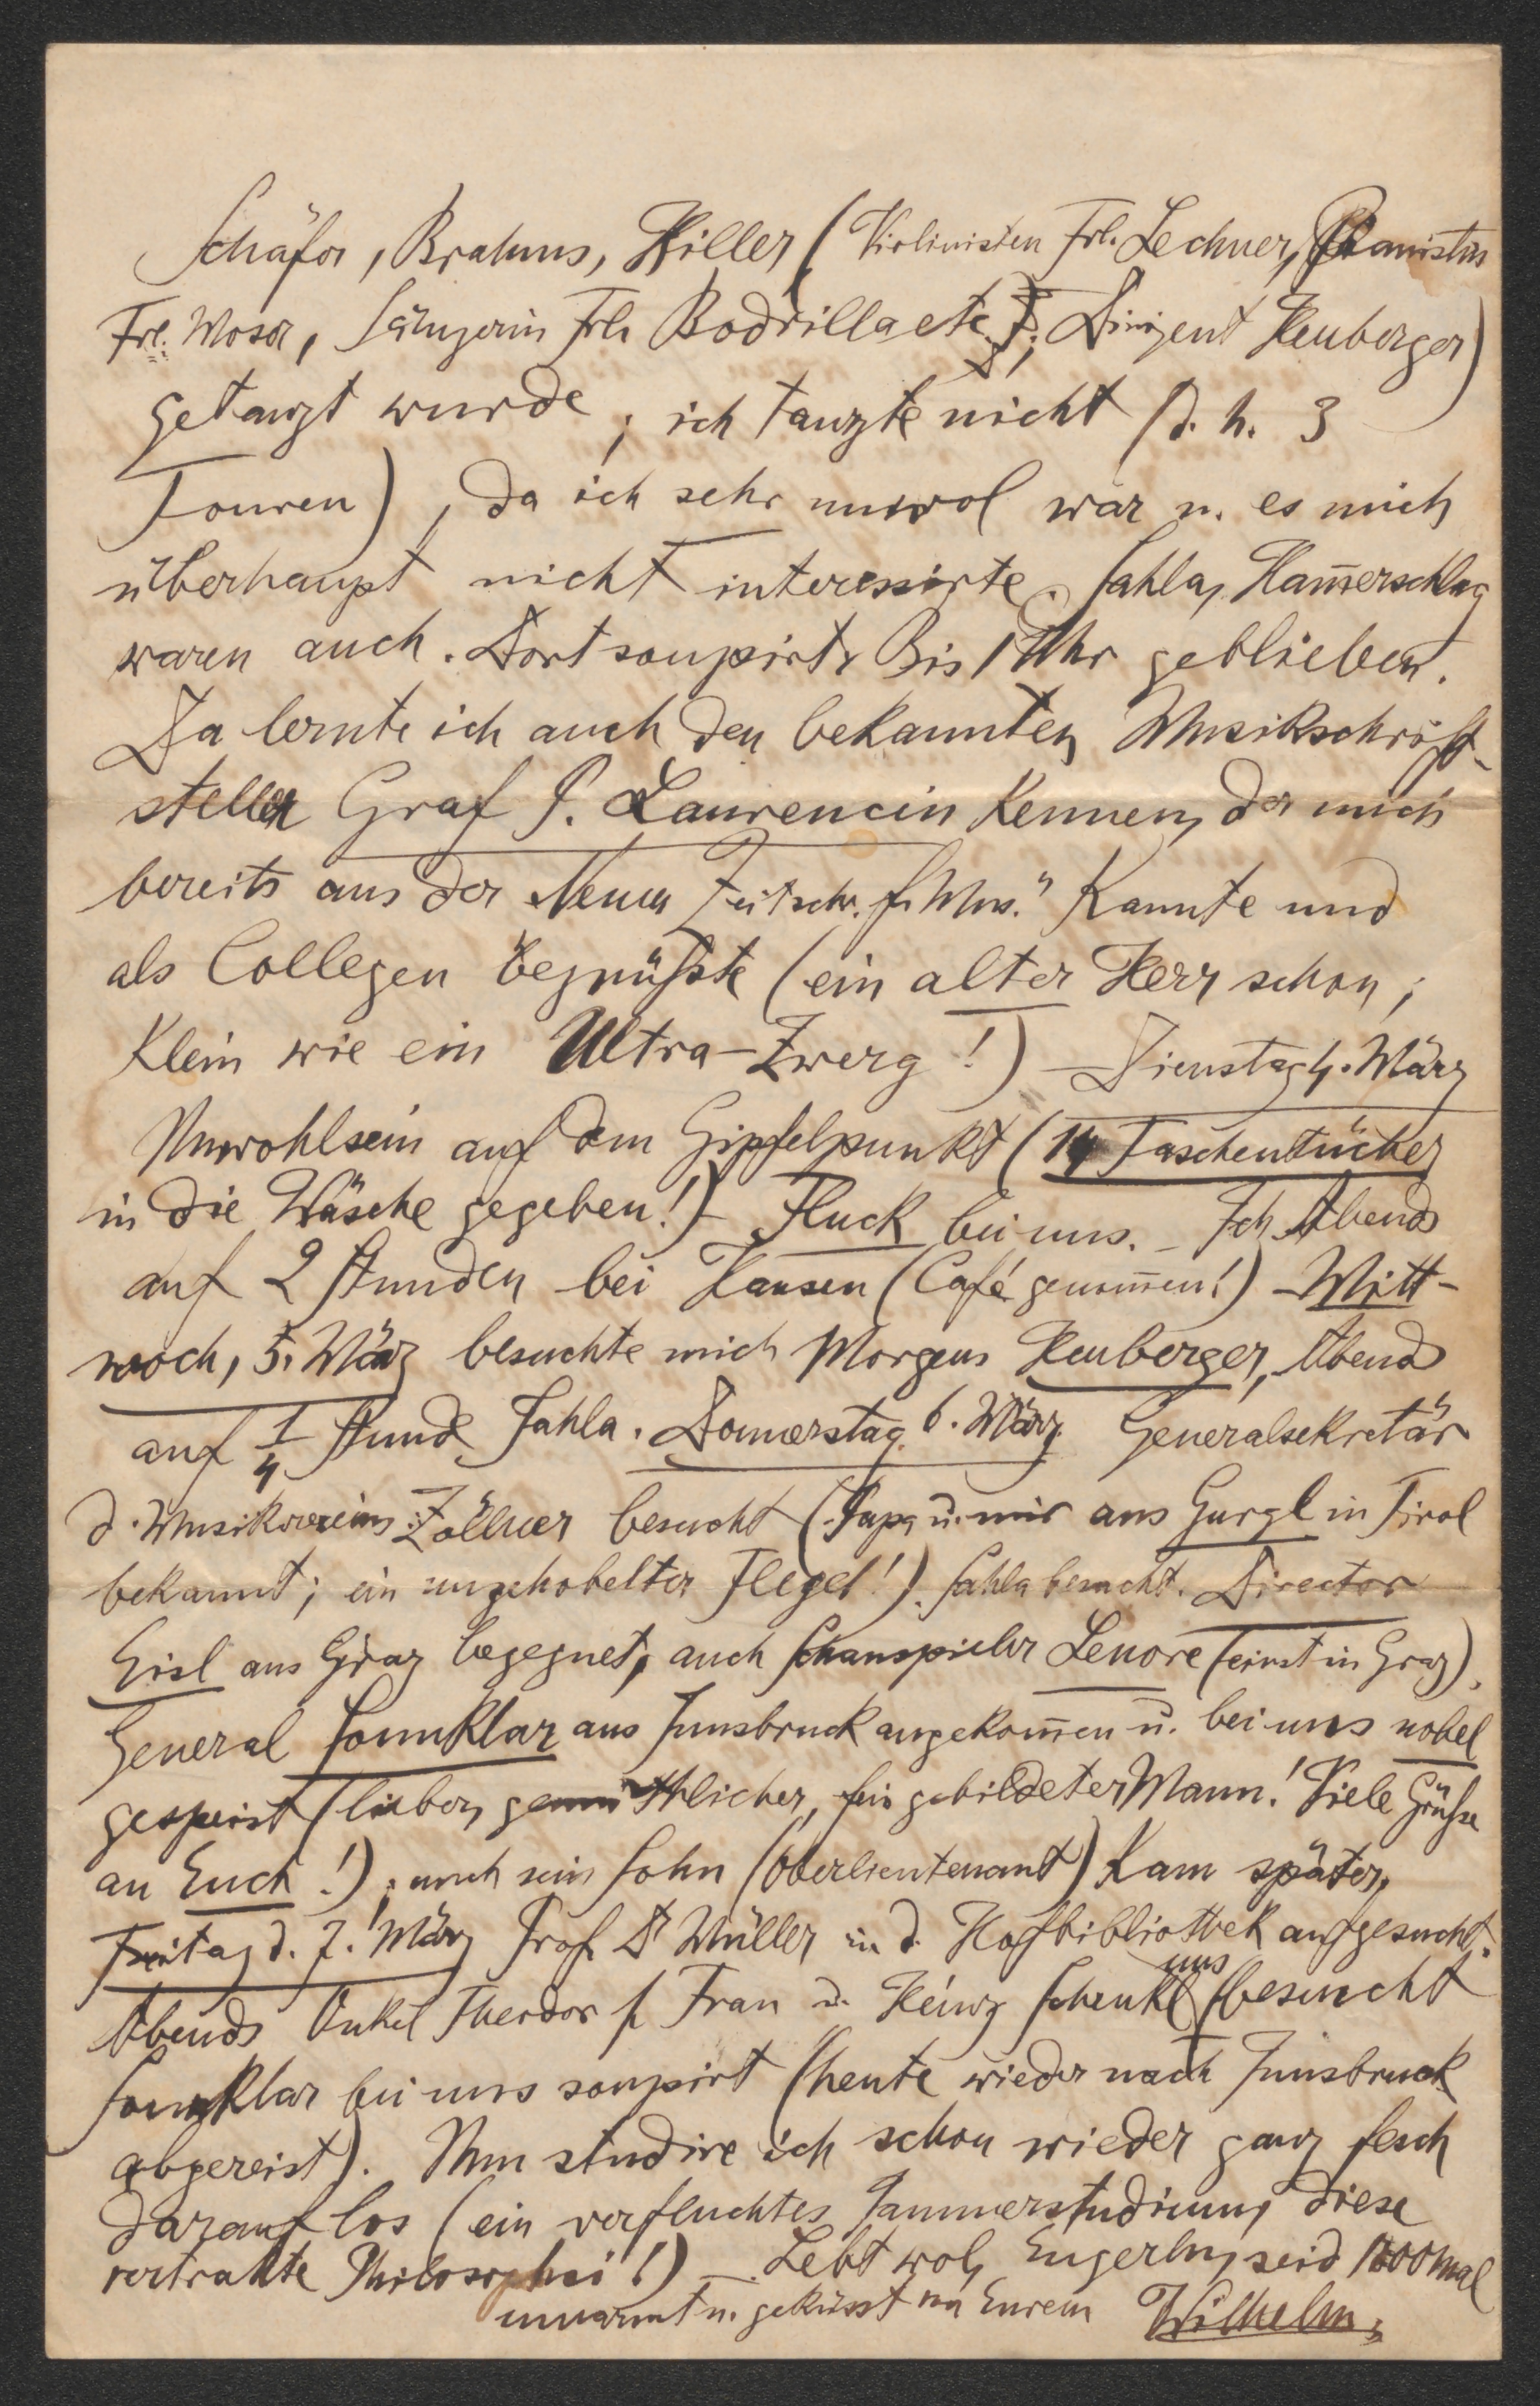 Schäfer, Brahms, Hiller (Violinisten Frl. Lechner, Pianistin
Frl. Moser, Sängerin Frl. Bodrilla etc.); Dirigent Heuberger)
getanzt wurde; ich tanzte nicht (d. h. 3
Touren), da ich sehr unwol war u. es mich
überhaupt nicht interessirte. Sahla, Ham̄erschlag
waren auch. Dort soupirt. Bis 1 Uhr geblieben.
Da lernte ich auch den bekannten Musikschrift-
steller Graf P. Laurencin kennen, der mich
bereits aus der Neuen Zeitschr. f. Mus." kannte und
als Collegen begrüßte (ein alter Herr schon;
klein wie ein Ultra-Zwerg!) – Dienstag 4. März
Unwohlsein auf dem Gipfelpunkt (14 Taschentücher
in die Wäsche gegeben!) – Fluck bei uns. – Ich Abends
auf 2 Stunden bei Hansen (Café genom̄en!) – Mitt-
woch, 5. März besuchte mich Morgens Heuberger, Abends
auf 1/4 Stunde Sahla. Donnerstag 6. März Generalsekretär
d. Musikvereins Zöllner besucht (Papa u. mir aus Gurgl in Tirol
bekannt; ein ungehobelter Flegel!). Sahla besucht. Director
Eisl aus Graz begegnet, auch Schauspieler Lenore (einst in Graz).
General Sonnklar aus Innsbruck angekom̄en u. bei uns nobel
gespeist (lieber, gemüthlicher, fein gebildeter Mann! Viele Grüße
an Euch!); auch sein Sohn (Oberlieutenant) kam später.
Freitag d. 7. März Prof. Dr Müller in d. Hofbibliothek aufgesucht.
Abends Onkel Theodor s. Frau u. Heinz Schenkl uns besucht
Sonnklar bei uns soupirt (heute wieder nach Innsbruck
abgereist). Nun studire ich schon wieder ganz fesch
darauf los (ein verfluchtes Jammerstudium, diese
vertrakte Philosophei!) – Lebt wol, Engerln, seid 1000mal
umarmt u. geküsst von Eurem Wilhelm.